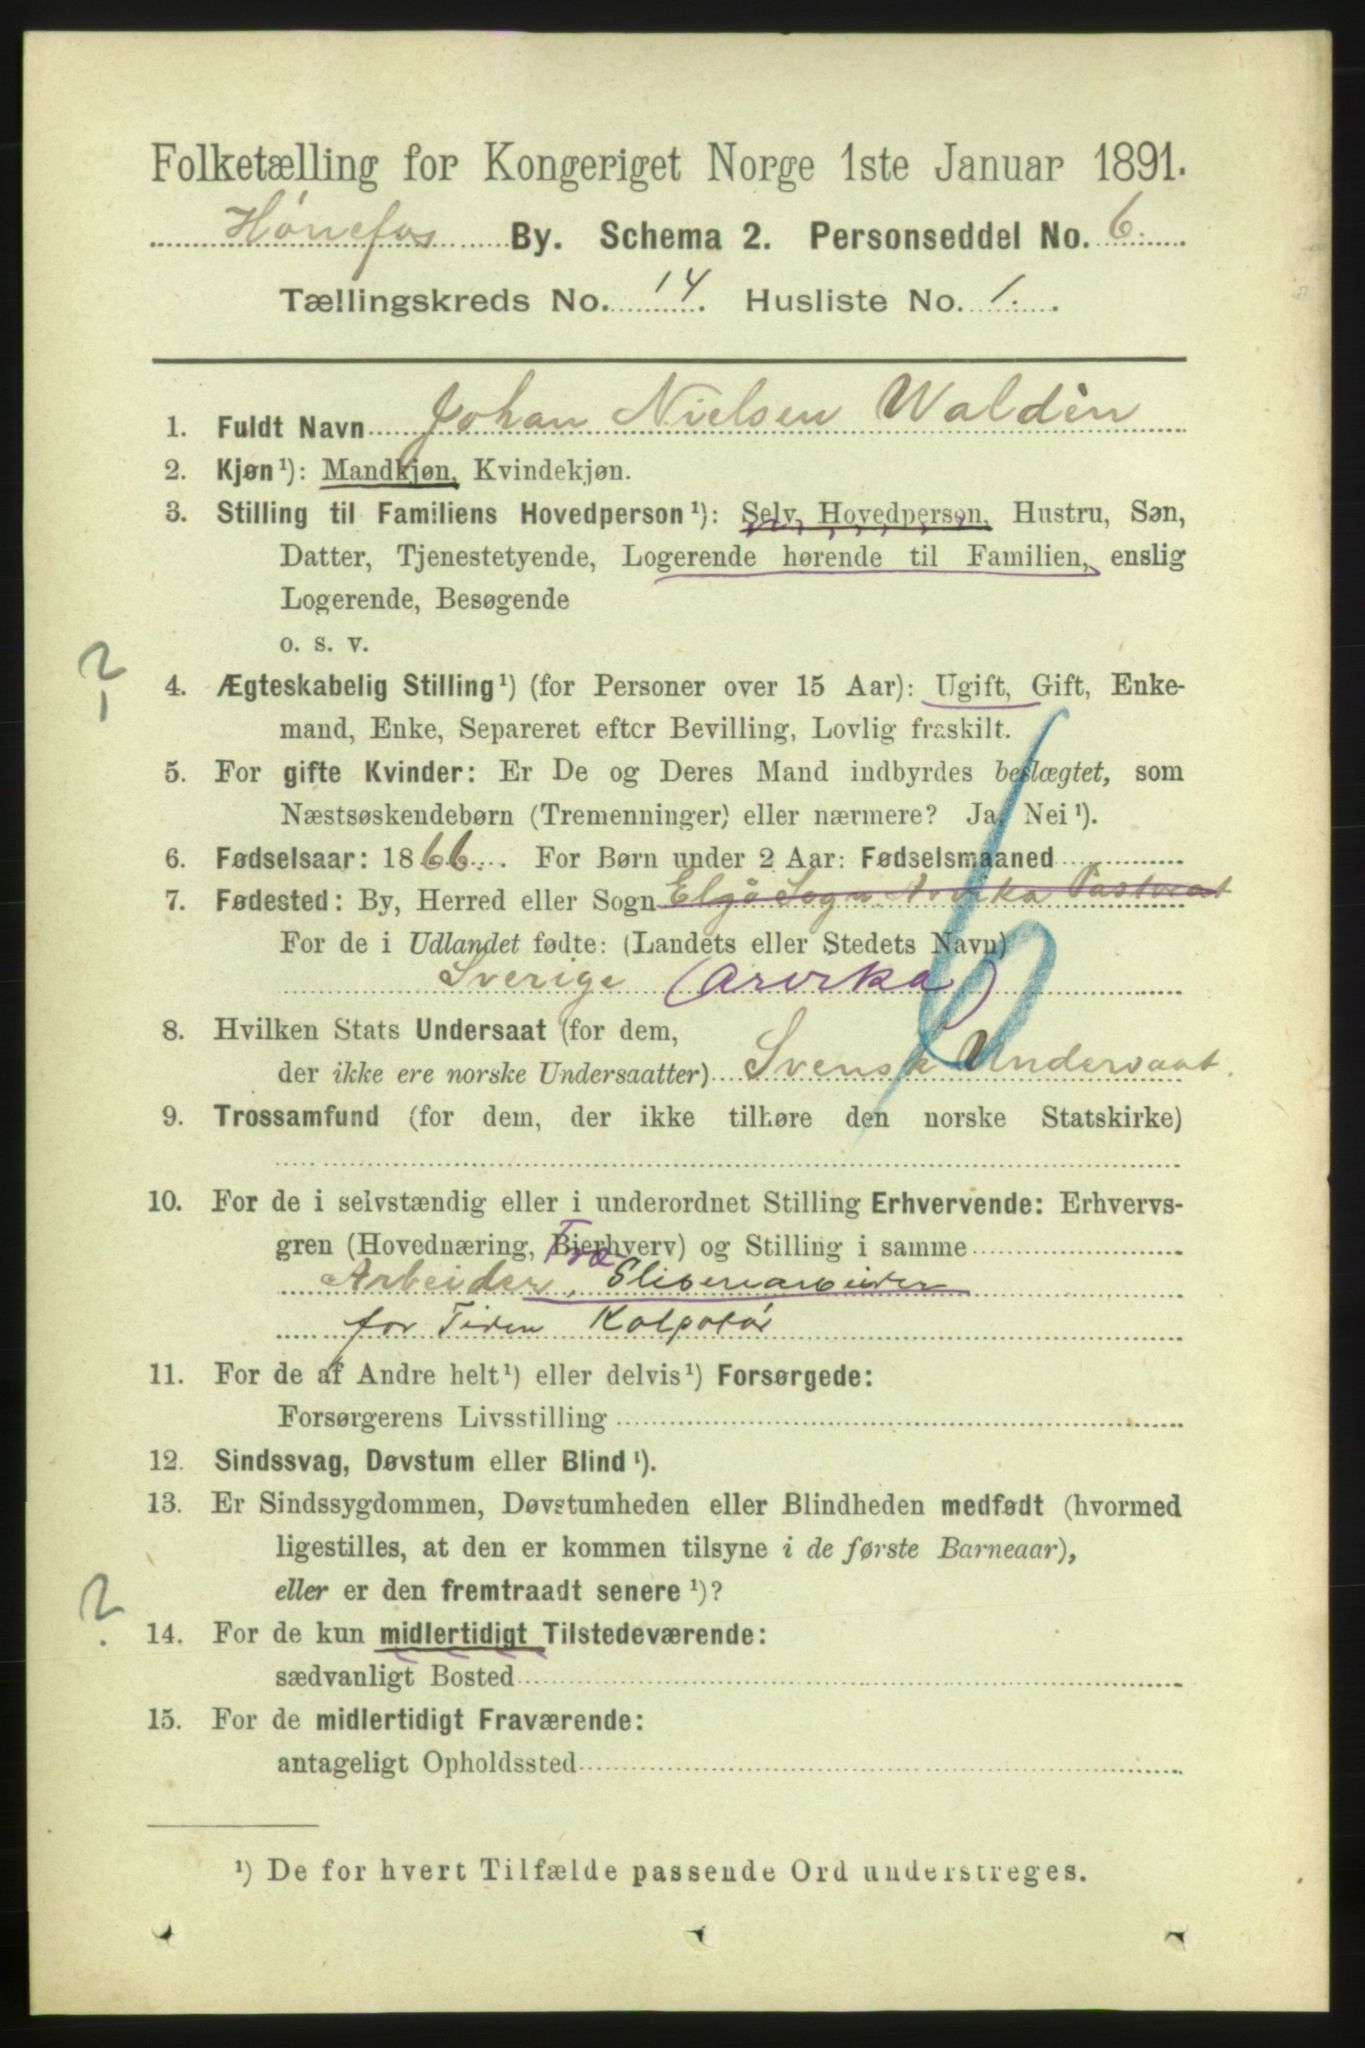 Folketælling for Kongeriget Norge 1ste Januar 1891.
Hønefos By. Schema 2. Personseddel No. 6.
Tællingskreds No. 14. Husliste No. 1.
1. Fuldt Navn Johan Nielsen Waldèn
2. Kjøn¹): Mandkjøn, Kvindekjøn.
3. Stilling til Familiens Hovedperson¹): Selv, Hovedperson, Hustru, Søn,
Datter, Tjenestetyende, Logerende hørende til Familien, enslig
Logerende, Besøgende
o. s. v.
?
4. Ægteskabelig Stilling¹) (for Personer over 15 Aar): Ugift, Gift, Enke-
mand, Enke, Separeret efter Bevilling, Lovlig fraskilt.
5. For gifte Kvinder: Er De og Deres Mand indbyrdes beslægtet, som
Næstsøskendebørn (Tremenninger) eller nærmere? Ja, Nei¹).
6. Fødselsaar: 1866. For Børn under 2 Aar: Fødselsmaaned
7. Fødested: By, Herred eller Sogn Elgå Sogn Arvika Pastorat
For de i Udlandet fødte: (Landets eller Stedets Navn)
Sverige (Arvika)
8. Hvilken Stats Undersaat (for dem,
der ikke ere norske Undersaatter) Svensk Undersaat.
9. Trossamfund (for dem, der ikke tilhøre den norske Statskirke)
10. For de i selvstændig eller i underordnet Stilling Erhvervende: Erhvervs-
gren (Hovednæring, Bierhverv) og Stilling i samme
Træ
Arbeider, Sliberiarbeider
for Tiden
11. For de af Andre helt¹) eller delvis¹) Forsørgede:
Forsørgerens Livsstilling
12. Sindssvag, Døvstum eller Blind¹).
13. Er Sindssygdommen, Døvstumheden eller Blindheden medfødt (hvormed
ligestilles, at den er kommen tilsyne i de første Barneaar),
eller er den fremtraadt senere¹)?
?
14. For de kun midlertidigt Tilstedeværende:
sædvanligt Bosted
15. For de midlertidigt Fraværende:
antageligt Opholdssted
¹) De for hvert Tilfælde passende Ord understreges.